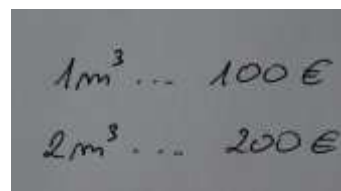 1m³ ... 100 €
2m³ ... 200 €